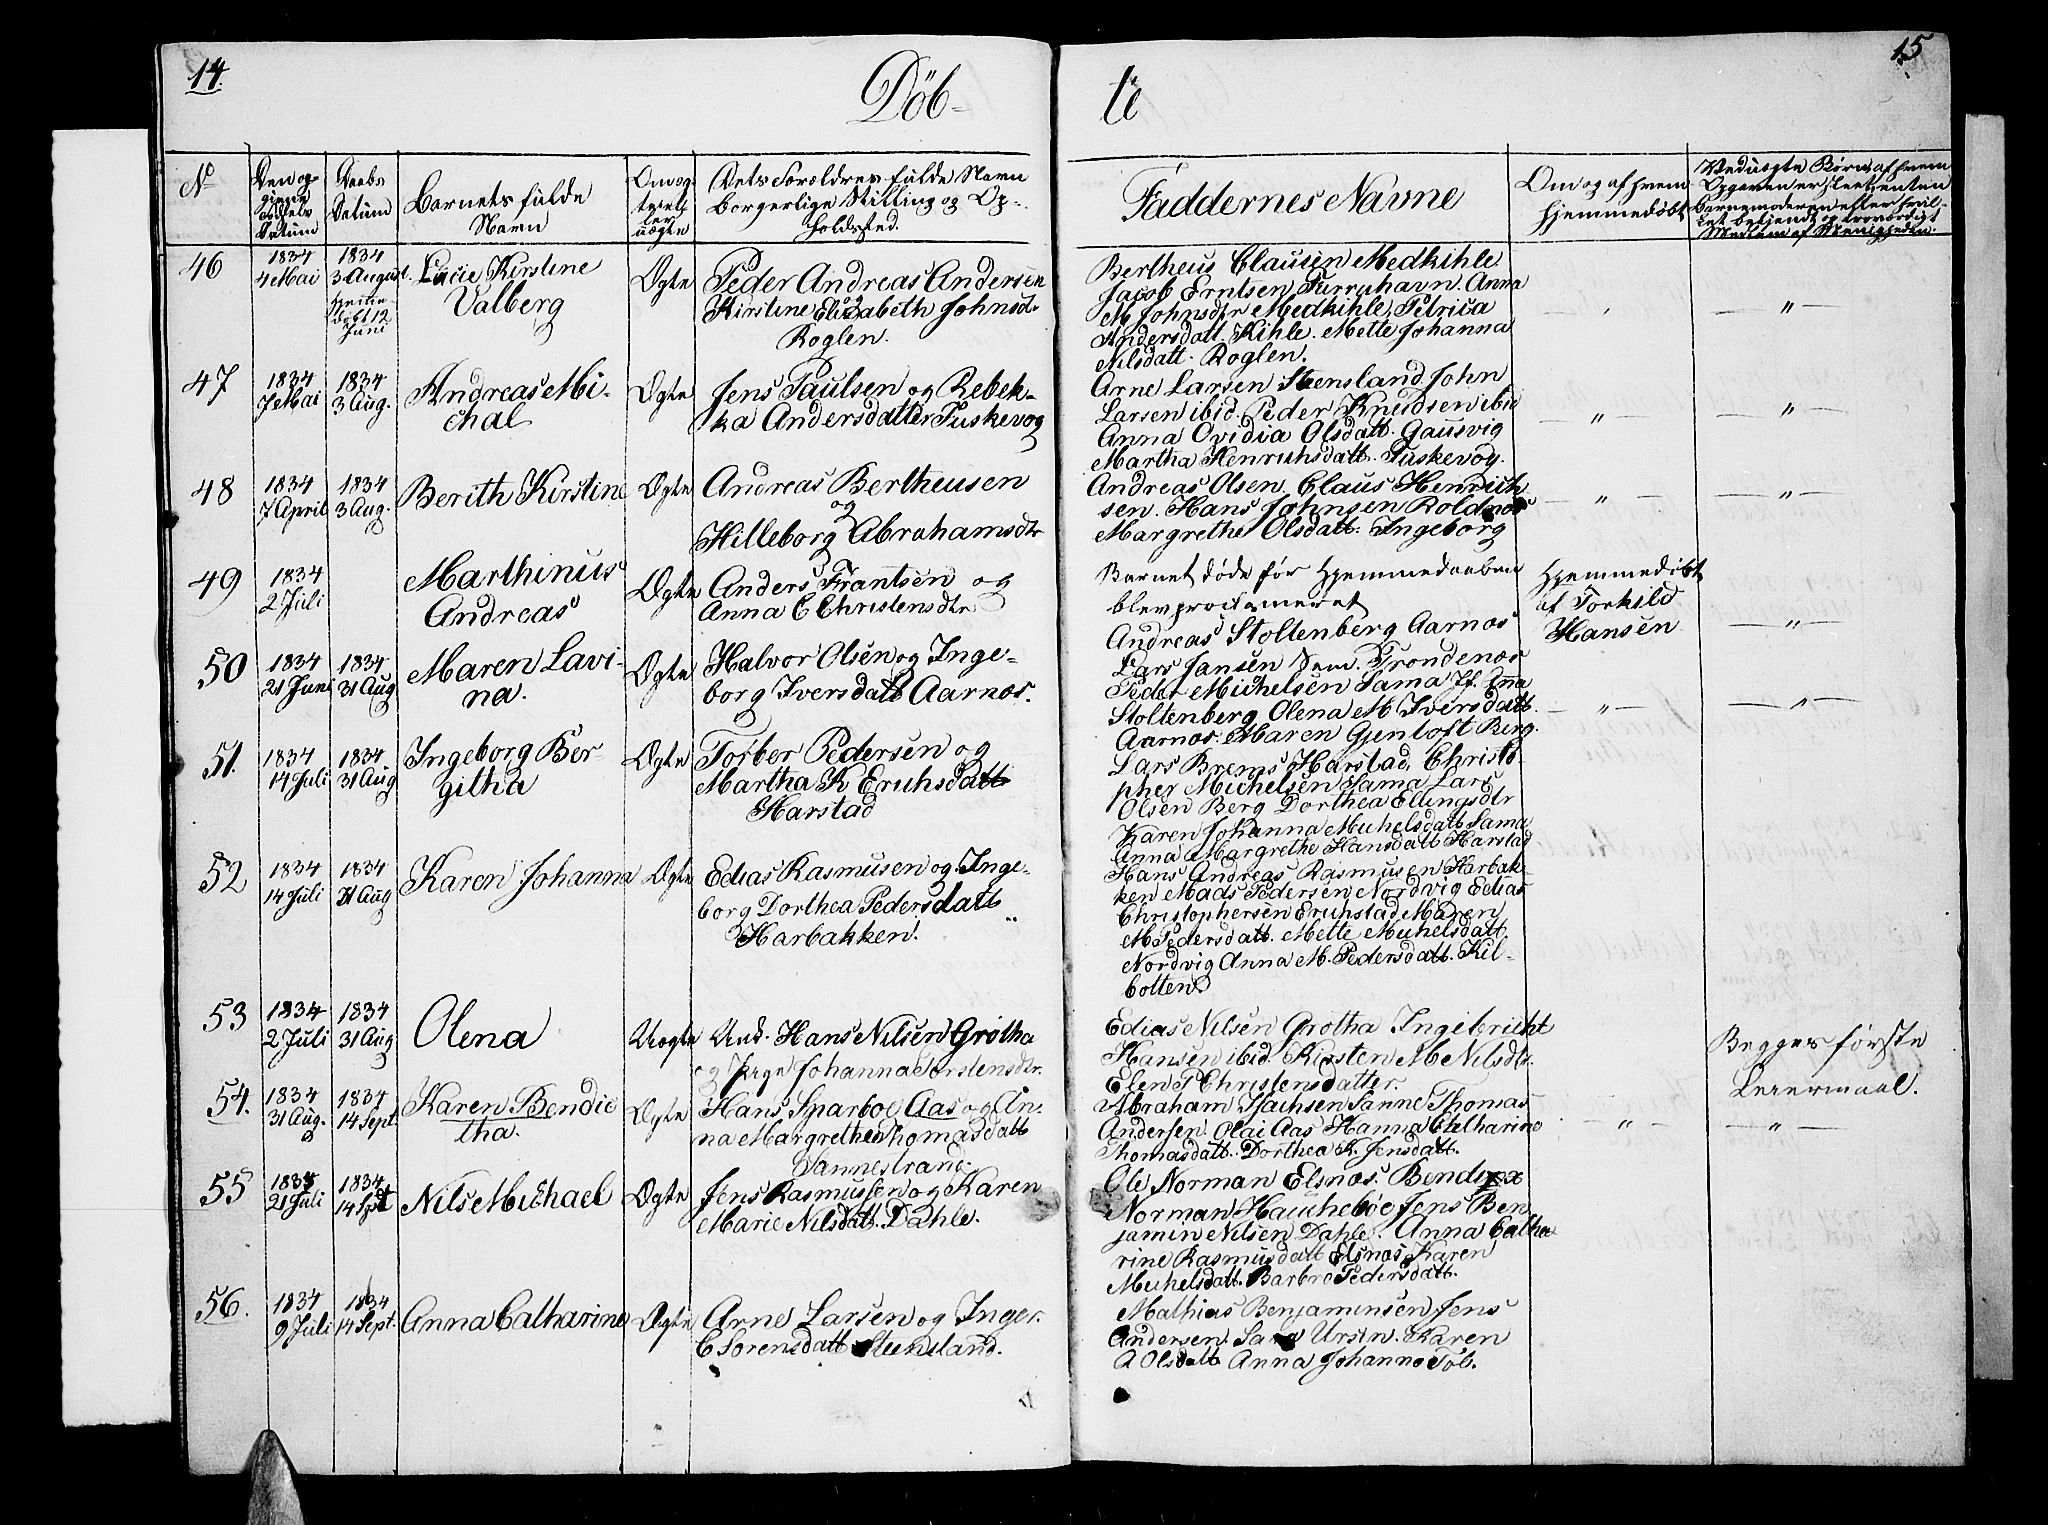 14.
Döb-
te
15
No
Daabs
Datum
Barnets fulde
Navn
Om æg-
te el-
ler
uægte
Dets Forældres fulde Navn
borgerlige Stilling og Op-
holdsted.
Faddernes Navne
Om og af hvem
hjemmedøbt
46
1834
4 Mai
1834
3 August.
hjemme-
døbt 12
Juni
Lucie Kirstine
Valberg
Ægte
Peder Andreas Andersen
og
Kirstine Elisabeth Johnsdr
Roglen.
Bertheus Clausen Medkihle
Jacob Erntsen Furruhavn. Anna
M Johnsdtr Medkihle, Petrica
Andersdatt. Kihle. Mette Johanna
Nilsdatt. Roglen.
"
47
1834
7 Mai
1834
3 Aug.
Andreas Mi-
chal
Ægte
Jens Paulsen og Rebek-
ka Andersdatter Fuskevog
Arne Larsen Steensland. John
Larsen ibid. Peder Knudsen ibid
Anna Ovidia Olsdatt. Gausvig
Martha Henrichsdatt. Fuskevog.
"
"
48
1834
7 April
1834
3 Aug.
Berith Kirstine
Ægte
Andreas Bertheusen
og
Hilleborg Abrahamsdtr
Andreas Olsen. Claus Henrich
sen. Hans Johnsen Roldnæs
Margrethe Olsdatt. Ingeborg
"
"
49
1834
2 Juli
Marthinus
Andreas
Ægte
Anders Frantsen og
Anna C Christensdtr
Barnet døde før Hjemmedaaben
blev proclameret
Hjemmedøbt
af Torkild
Hansen
"
50
1834
21 Juni
1834
31 Aug
Maren Lavi-
na.
Ægte
Halvor Olsen og Inge-
borg Iversdatt Aarnæs.
Andreas Stoltenberg Aarnæs
Lars Jansen Sem. Trondenæs
Peder Michelsen Sama Jf. Anna
Stoltenberg Olena M Iversdatt.
Aarnæs. Maren Gjentoft Berg.
"
"
51.
1834
14 Juli
1834
31 Aug
Ingeborg Ber-
githa
Ægte
Torber Pedersen og
Martha K Erichsdatt
Harstad
Lars Brems Harstad, Christo
pher Michelsen Sama Lars
Olsen Berg Dorthea Ellingsdtr
Karen Johanna Michelsdatt Sama
Anna Margrethe Hansdatt Harstad
52
1834
14 Juli
1834
31 Aug
Karen Johanna
Ægte
Edias Rasmusen og Inge-
borg Dorthea Pedersdatt
Harbakken.
Hans Andreas Rasmusen Harbak-
ken Mads Pedersen Nordvig Edias
Christophersen Erichstad Maren
M Pedersdatt. Mette Michelsdatt.
Nordvig Anna M. Pedersdatt. Kil-
botten.
53
1834
2 Juli
1834
31 Aug
Olena
Uægte
Und. Hans Nilsen Grotha
og Pige Johanna Torstensdtr.
Edias Nilsen Grotha Ingebricht
Hansen ibid. Kirsten M Nilsdtr.
Elen P Christensdatter.
Begges første
Leiermaal.
54.
1834
31 Aug.
1834
14 Sept
Karen Bendic
tha.
Ægte
Hans Sparboe Aas og An-
na Margrethe Thomasdatt
Sannestrand.
Abraham Isachsen Sanne Thomas
Andersen Olai Aas Hanna Chatharine
Thomasdatt. Dorthea K. Jensdatt.
"
"
55
1834
21 Juli
1834
14 Sept
Nils Michael
Ægte
Jens Rasmussen og Karen
Marie Nilsdatt. Dahle.
Ole Norman Elsnæs. Bendix
Norman Hauchebøe Jens Ben
jamin Nilsen Dahle. Anna Catha
rine Rasmusdatt Elsnæs Karen
Michelsdatt. Barbro Pedersdatt.
56.
1834
9 Juli
1834
14 Sept.
Anna Catharine
Ægte
Arne Larsen og Inger.
C Sorensdatt Steensland.
Mathias Benjaminsen, Jens
Andersen. Sara Ursin. Karen
A Olsdatt Anna Johanna Tob.